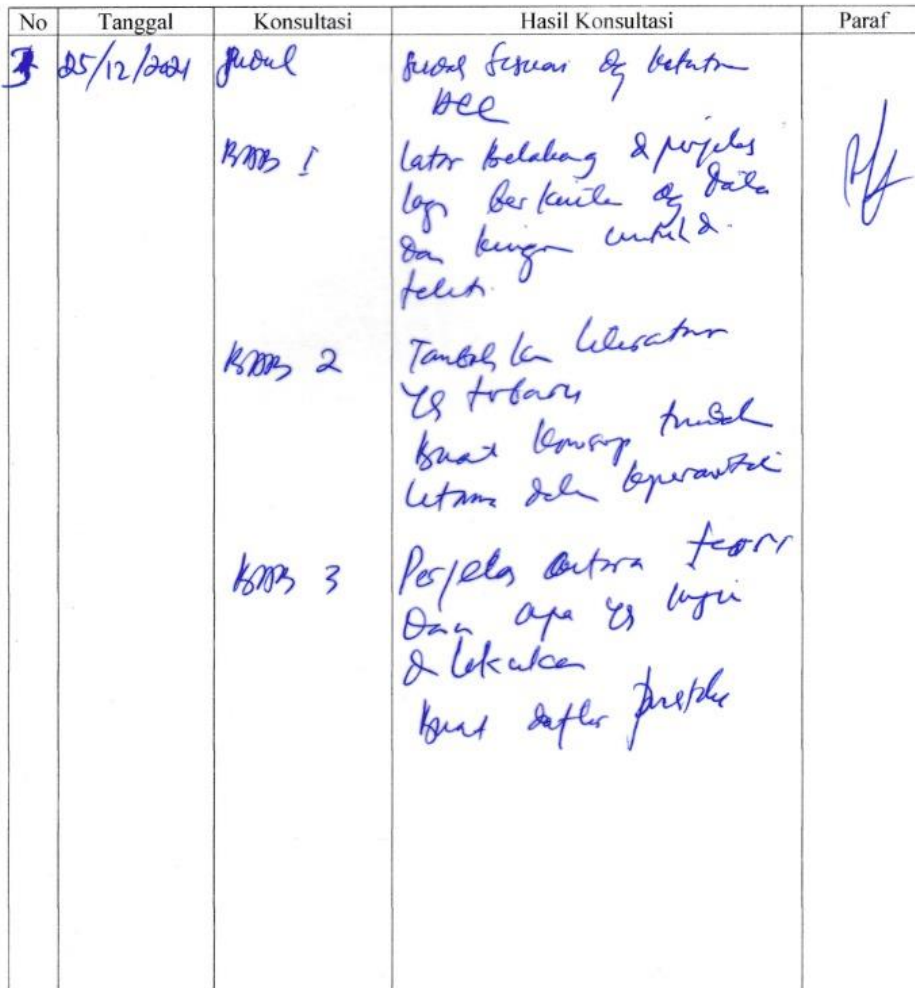 No Tanggal Konsultasi Hasil Konsultasi Paraf
25/12/2021 Judul Judul sesuai dg
ACC
BAB I Latar Belakang diperjelas
lagi berkaitan dg data
dan untuk di
teliti
BAB 2 Tambahkan literatur
yg terbaru
Buat konsep
utama dalam keperawatan
BAB 3 Perjelas antara teori
Dan apa yg ingin
di lakukan
Buat daftar pustaka